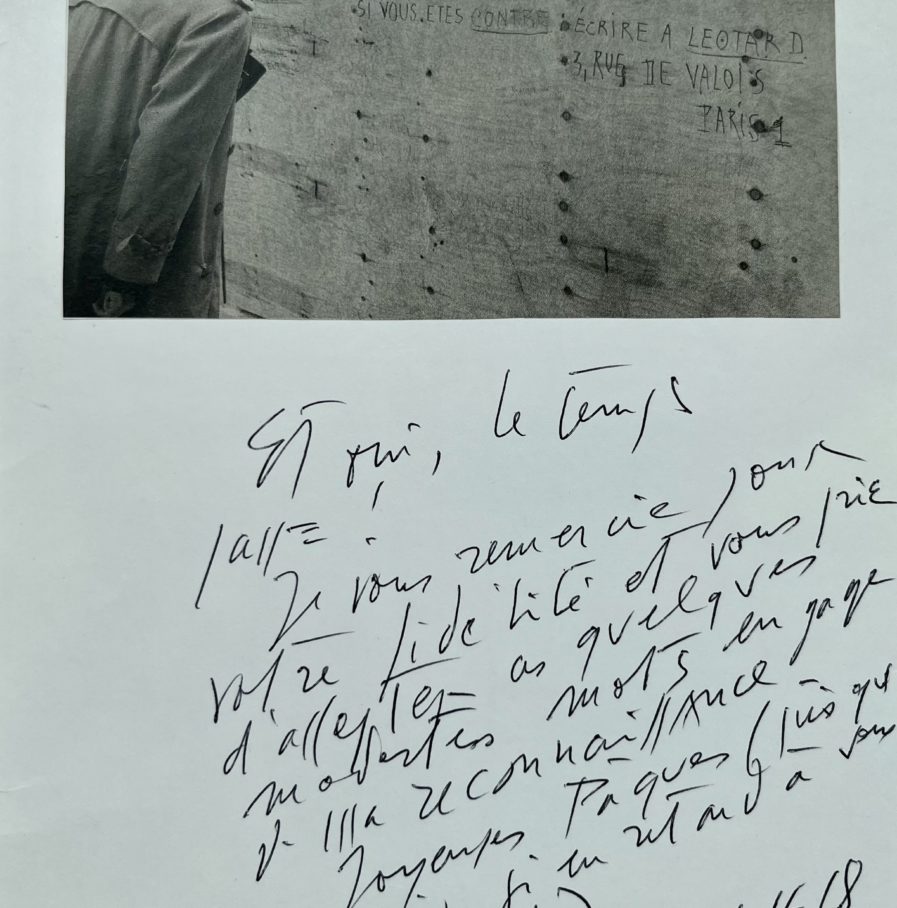 SI VOUS ETES CONTRE ÉCRIRE A LEOTARD
3, RUE DE VALOIS
PARIS 1
Et oui, le temps
passe !
Je vous remercie pour
votre fidélité et vous prie
d'accepter ces quelques
modestes mots en gage
de ma reconnaissance
Joyeuses Pâques (puisque
si en retard à